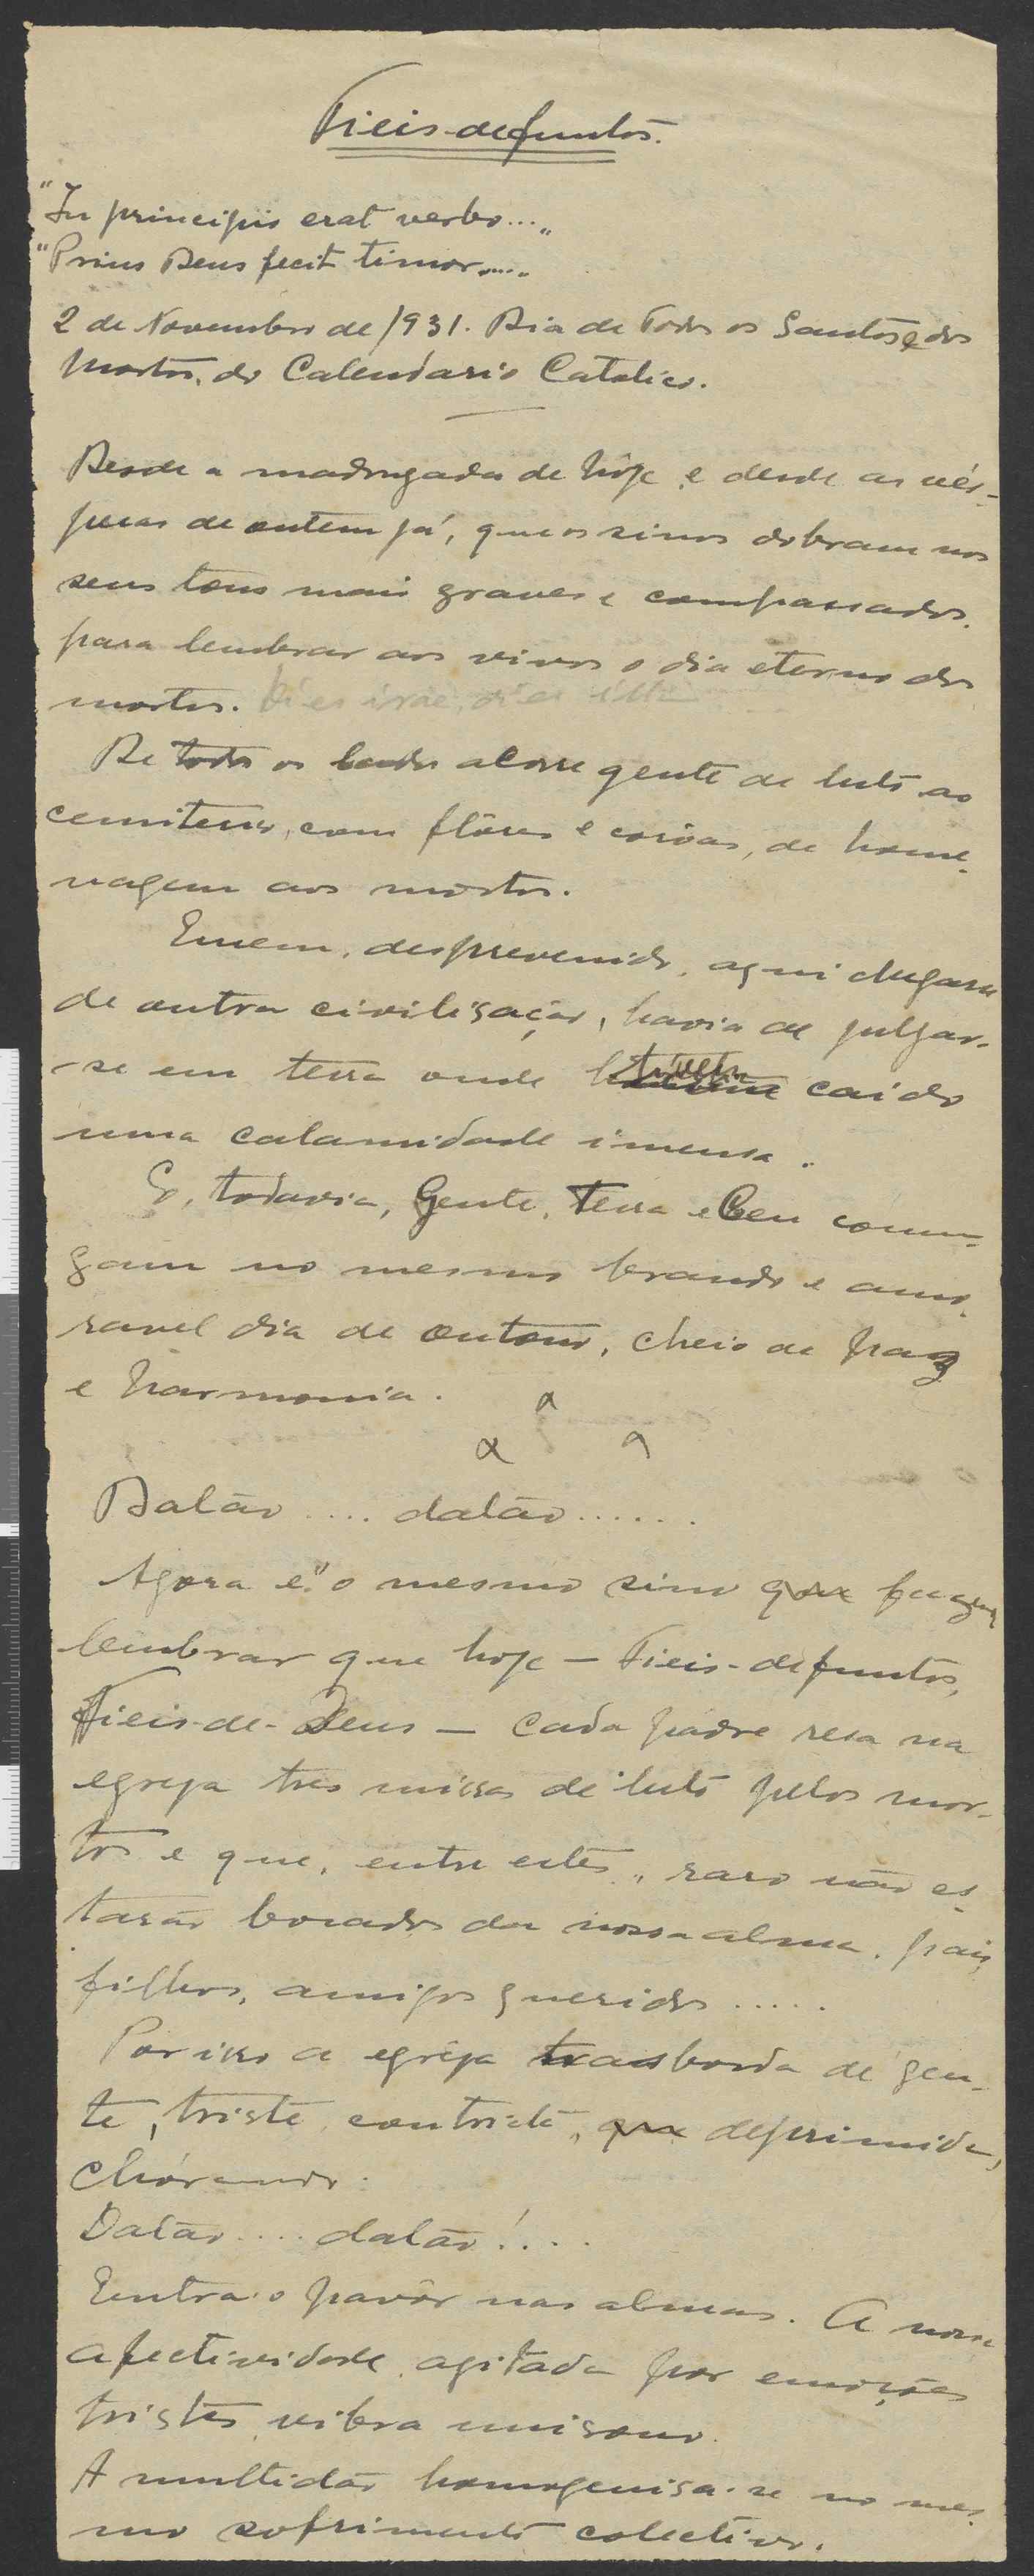 Fieis-defuntos.
"In principio erat verbo..."
"Prius Deus fecit timor.....
2 de Novembro de 1931. Dia de Todos os Santos e dos
Mortos, do Calendario Catolico.
Desde a madrugada de hoje e desde as vés-
peras de ontem já, que os sinos dobram nos
seus tons mais graves e compassados.
para lembrar aos vivos o dia eterno dos
mortos. Dies irae, dies illa
De todos os lados acorre gente de luto ao
cemiterio, com flôres e coroas, de home-
nagem aos mortos.
Quem, desprevenido, aqui chegasse
de outra civilisação, havia de julgar-
-se em terra onde tivesse caido
uma calamidade imensa.
E, todavia, Gente, Terra e Ceu comun-
gam no mesmo brando e amo-
ravel dia de outono, cheio de paz
e harmonia.
Dalão .... dalão ......
Agora é o mesmo sino que faz
lembrar que hoje — Fieis-defuntos,
Fieis-de-Deus — cada padre resa na
egreja tres missas de luto pelos mor-
tos e que, entre estes, raro não es-
tarão bocados da nossa alma. pais,
filhos, amigos queridos .....
Por isso a egreja trasborda de gen-
te, triste, contricta, deprimida,
chórando.
Dalão .... dalão! ....
Entra o pavôr nas almas. A nossa
afectividade agitada por emoções
tristes vibra unisono.
A multidão homogenisa-se no mes-
mo sofrimento colectivo.